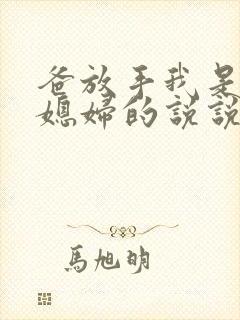 爸放手我是
媳婦的說說
馬旭明